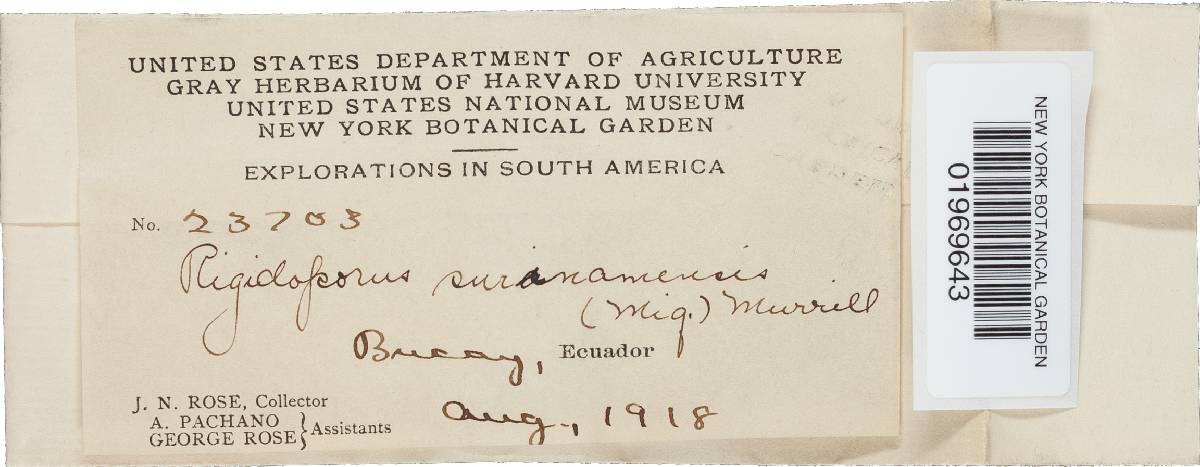 UNITED STATES DEPARTMENT OF AGRICULTURE
GRAY HERBARIUM OF HARVARD UNIVERSITY
UNITED STATES NATIONAL MUSEUM
NEW YORK BOTANICAL GARDEN
EXPLORATIONS IN SOUTH AMERICA
No. 23703
Rigidoporus surinamensis
(Miq.) Murrill
Bucay, Ecuador
J. N. ROSE, Collector
A. PACHANO
GEORGE ROSE } Assistants
Aug., 1918
NEW YORK BOTANICAL GARDEN
01969643